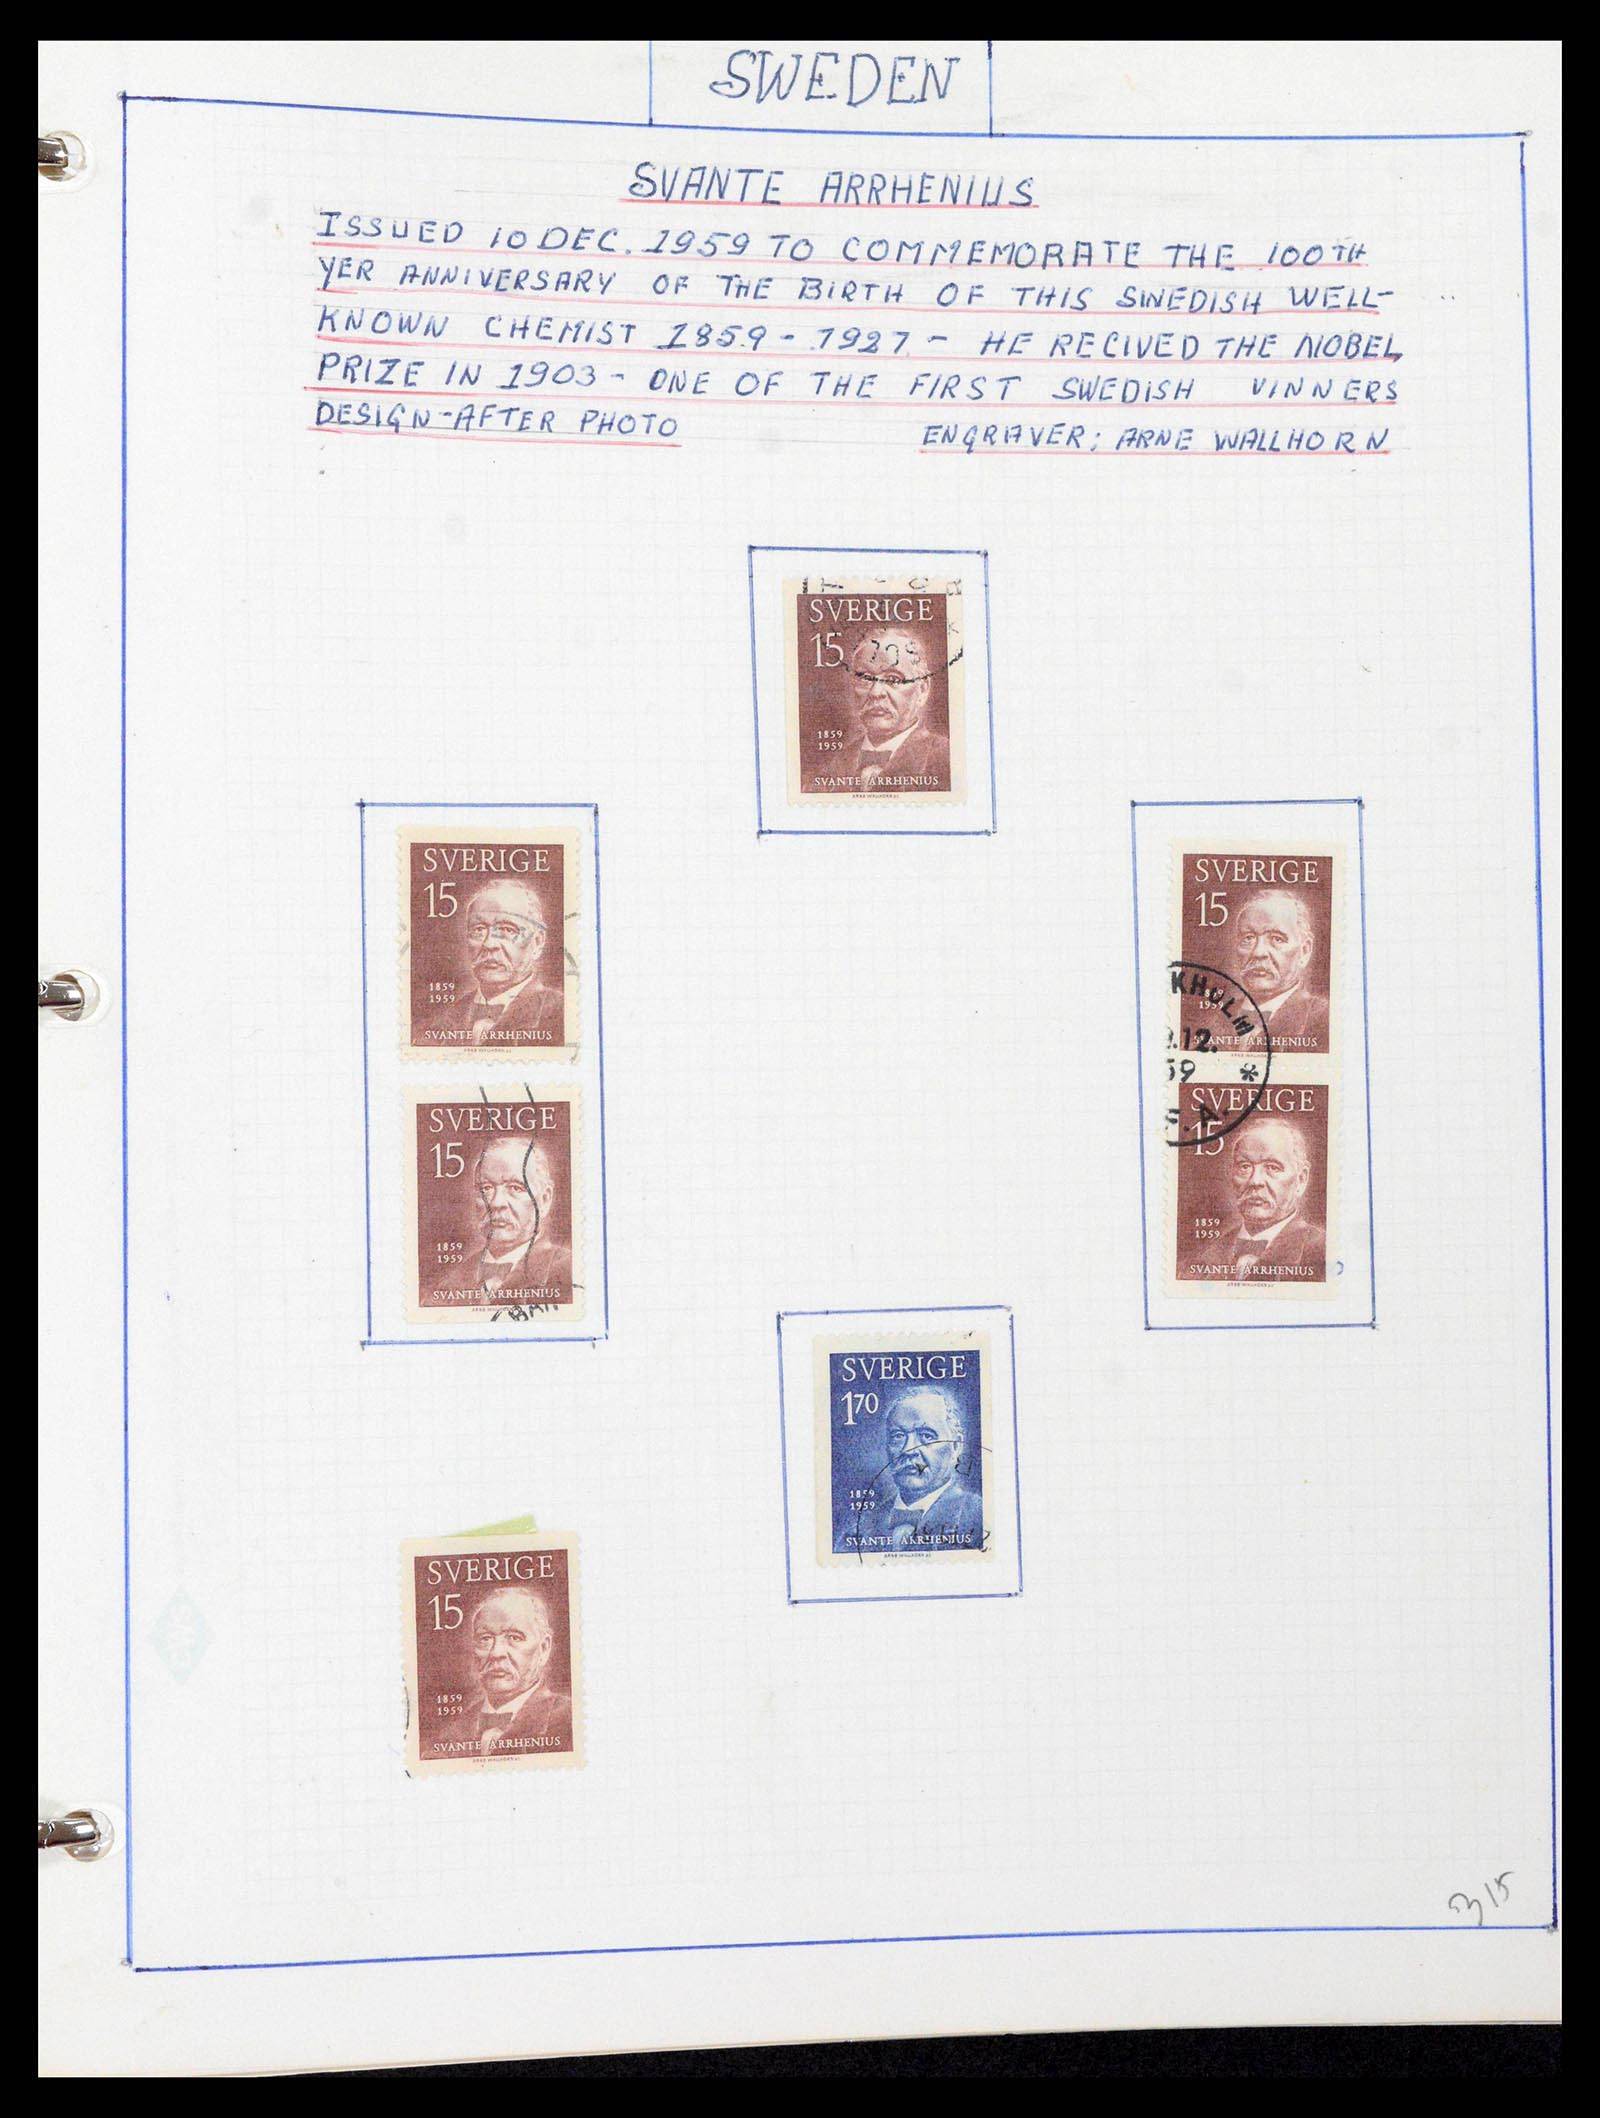 SWEDEN
SVANTE ARRHENIUS
ISSUED 10 DEC. 1959 TO COMMEMORATE THE 100TH
YER ANNIVERSARY OF THE BIRTH OF THIS SWEDISH WELL-
KNOWN CHEMIST 1859 - 1927 - HE RECIVED THE NOBEL
PRIZE IN 1903 - ONE OF THE FIRST SWEDISH VINNERS
DESIGN-AFTER PHOTO ENGRAVER: ARNE WALLHORN
SVERIGE
15
1859
1959
SVANTE ARRHENIUS
SVERIGE
15
1859
1959
SVANTE ARRHENIUS
SVERIGE
15
1859
1959
SVANTE ARRHENIUS
SVERIGE
15
1859
1959
SVANTE ARRHENIUS
KHOLM
.12.
59 *
F.A.
SVERIGE
15
1859
1959
SVANTE ARRHENIUS
SVERIGE
170
1859
1959
SVANTE ARRHENIUS
SVERIGE
15
1859
1959
SVANTE ARRHENIUS